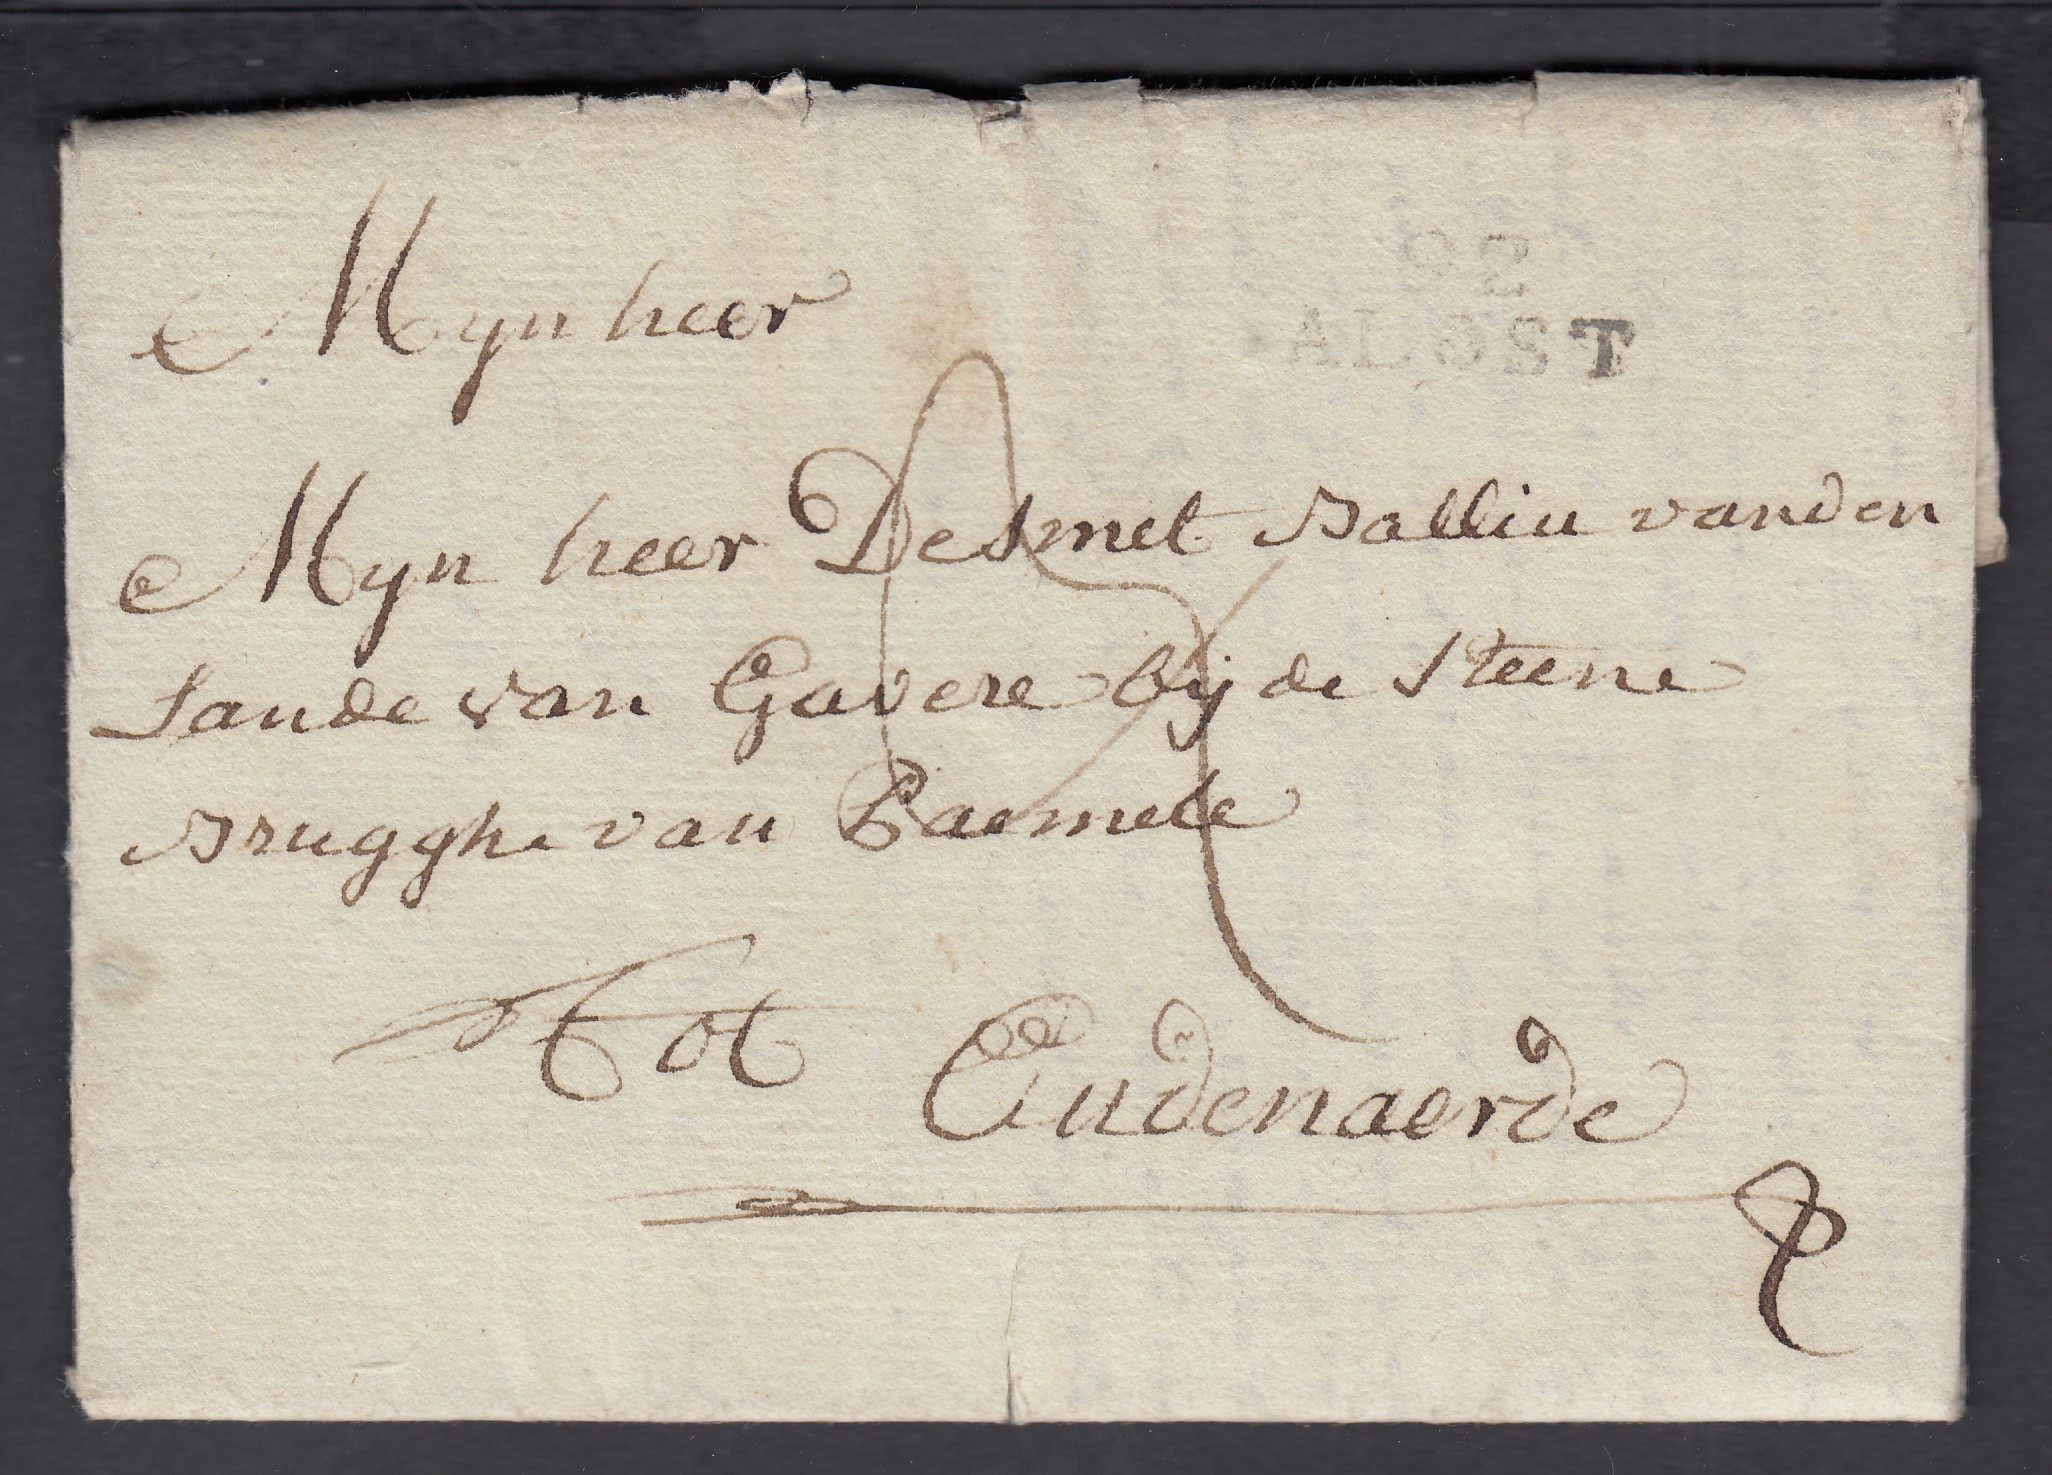 Mynheer
92
ALOST
Myn heer Desmet Balliu vanden
Lande van Gavere bij de steene
Brugghe van Paemele
Tot Audenaerde